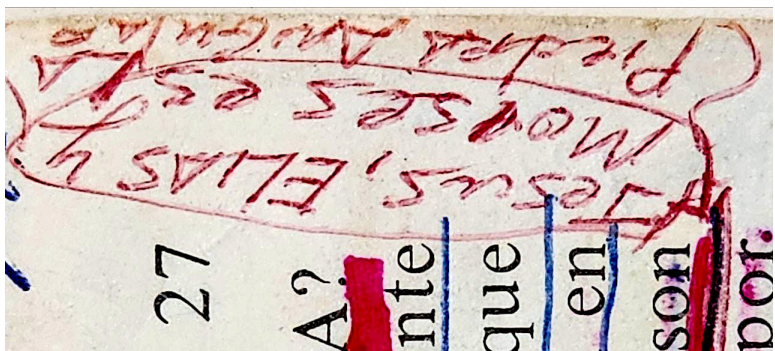 Jesus, ELIAS y
MOYSES es LA
PIEDRA ANGULAR
27
A?
nte
que
en
son
por.